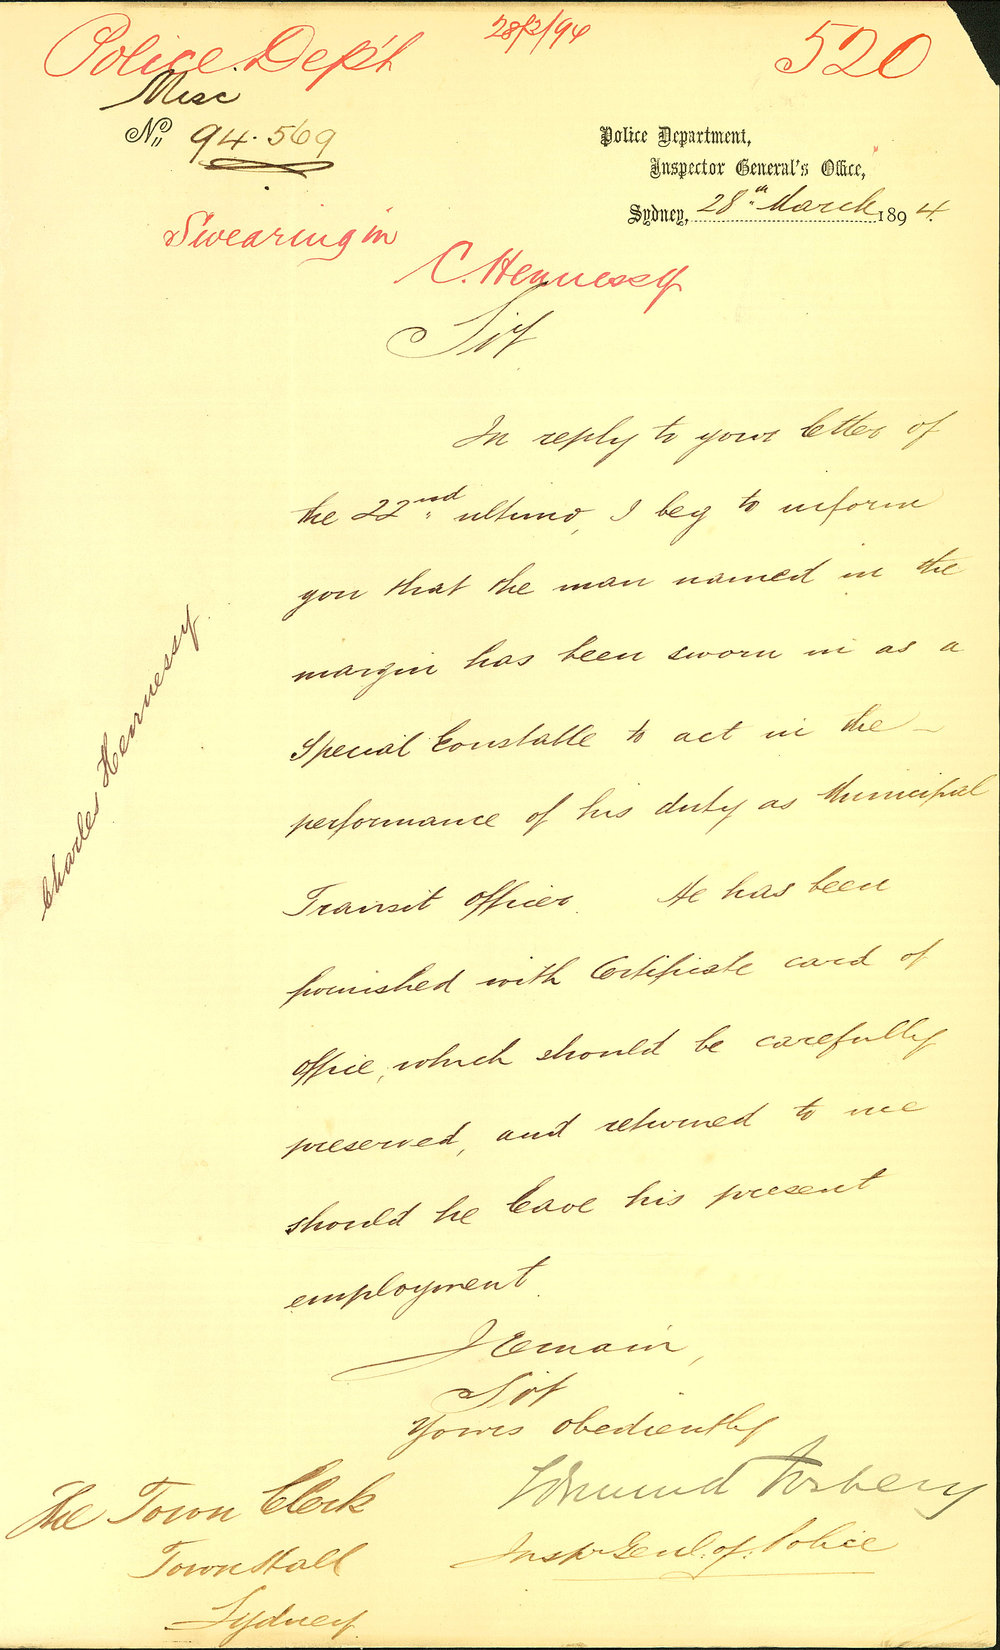 Police Dep't
28/3/94
520
Misc
No. 94.569
Police Department,
Inspector General's Office,
Sydney, 28th March 1894.
Swearing in
C. Hennessy
Sir
In reply to your letter of
the 22nd ultimo, I beg to inform
you that the man named in the
margin has been sworn in as a
Special Constable to act in the
performance of his duty as Municipal
Transit Officer. He has been
furnished with Certificate card of
office, which should be carefully
preserved, and returned to me
should he leave his present
employment.
Charles Hennessy
I remain,
Sir
Yours obediently
Edmund Fosbery
Inspr. Genl. of Police
The Town Clerk
Town Hall
Sydney.